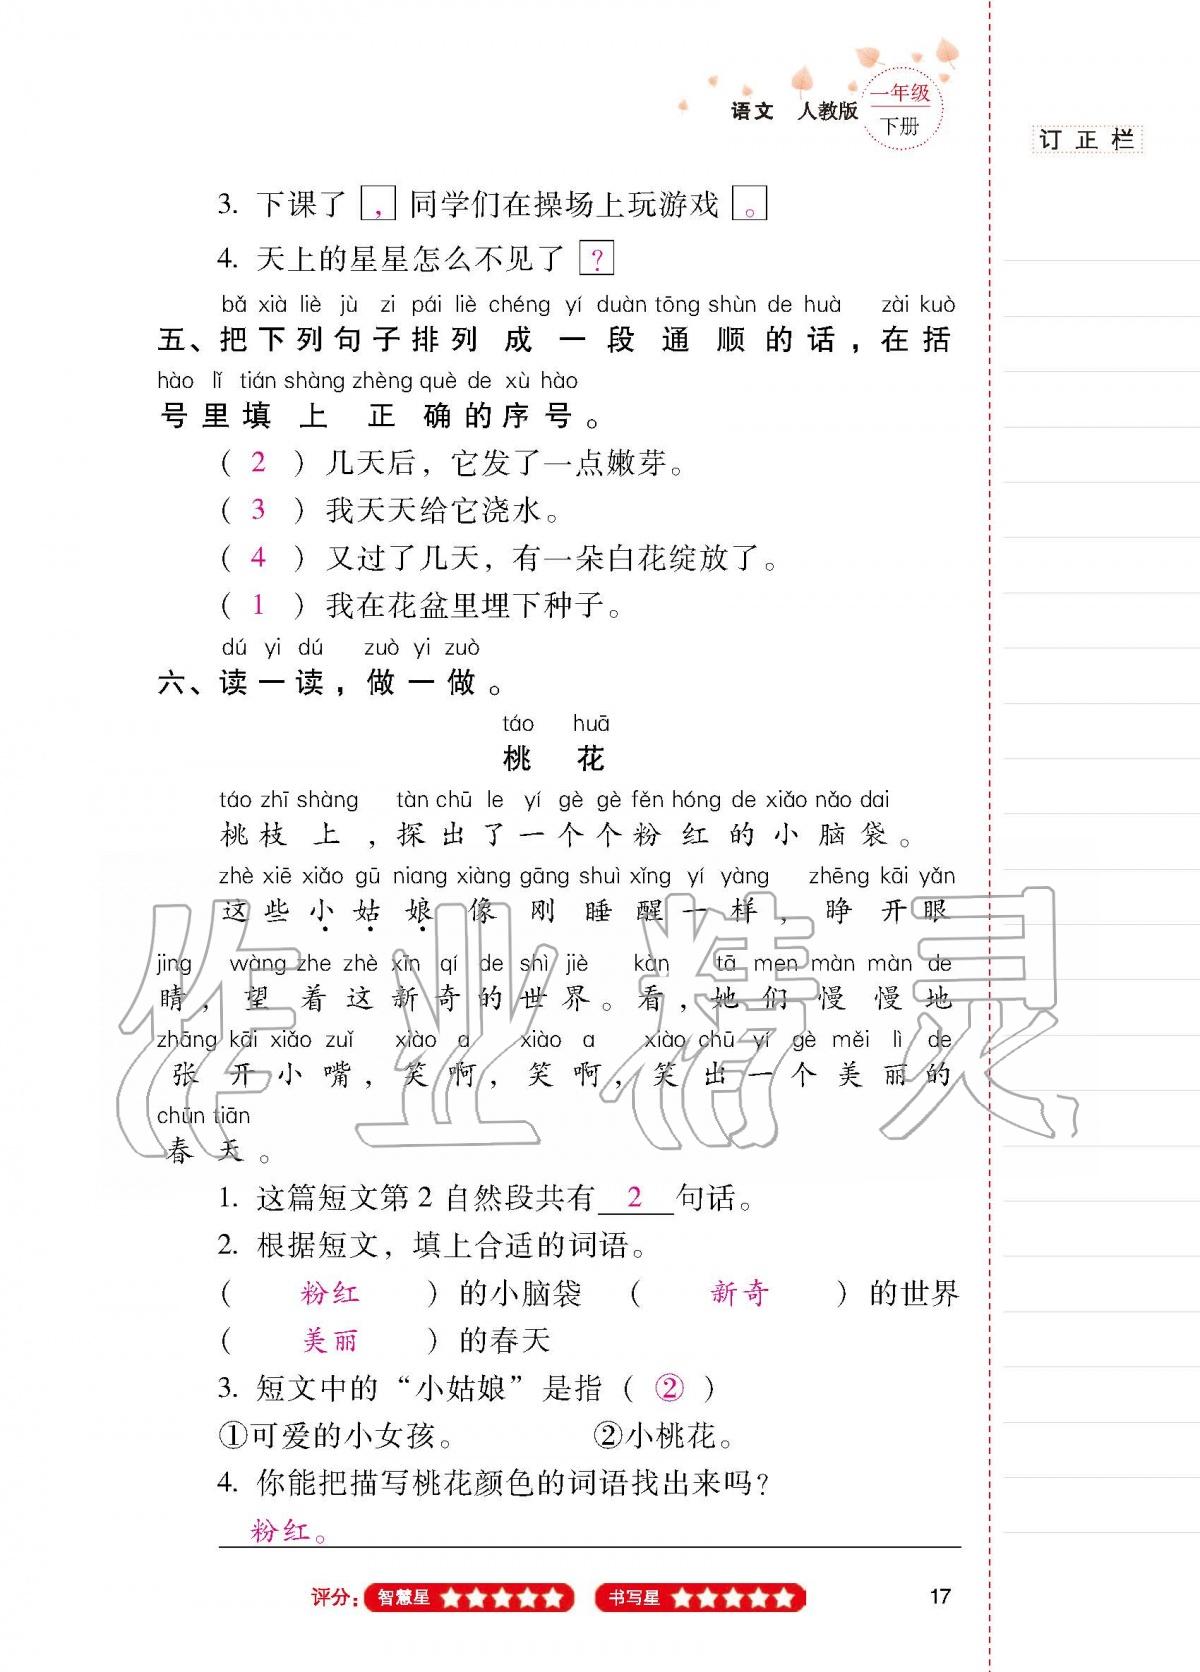 语文 人教版 一年级
下册
订正栏
3. 下课了 , 同学们在操场上玩游戏 。
4. 天上的星星怎么不见了 ?
bǎ xià liè jù zi pái liè chéng yí duàn tōng shùn de huà zài kuò
五、把下列句子排列成一段通顺的话，在括
hào lǐ tián shàng zhèng què de xù hào
号里填上正确的序号。
（ 2 ）几天后，它发了一点嫩芽。
（ 3 ）我天天给它浇水。
（ 4 ）又过了几天，有一朵白花绽放了。
（ 1 ）我在花盆里埋下种子。
dú yi dú zuò yi zuò
六、读一读，做一做。
táo huā
桃花
táo zhī shàng tàn chū le yí gè gè fěn hóng de xiǎo nǎo dai
桃枝上，探出了一个个粉红的小脑袋。
zhè xiē xiǎo gū niang xiàng gāng shuì xǐng yí yàng zhēng kāi yǎn
这些小姑娘像刚睡醒一样，睁开眼
jing wàng zhe zhè xīn qí de shì jiè kàn tā men màn màn de
睛，望着这新奇的世界。看，她们慢慢地
zhāng kāi xiǎo zuǐ xiào a xiào a xiào chū yí gè měi lì de
张开小嘴，笑啊，笑啊，笑出一个美丽的
chūn tiān
春天。
1. 这篇短文第2自然段共有 2 句话。
2. 根据短文，填上合适的词语。
（ 粉红 ）的小脑袋 （ 新奇 ）的世界
（ 美丽 ）的春天
3. 短文中的“小姑娘”是指（ ② ）
①可爱的小女孩。 ②小桃花。
4. 你能把描写桃花颜色的词语找出来吗？
粉红。
评分：智慧星 书写星 17
作业精灵